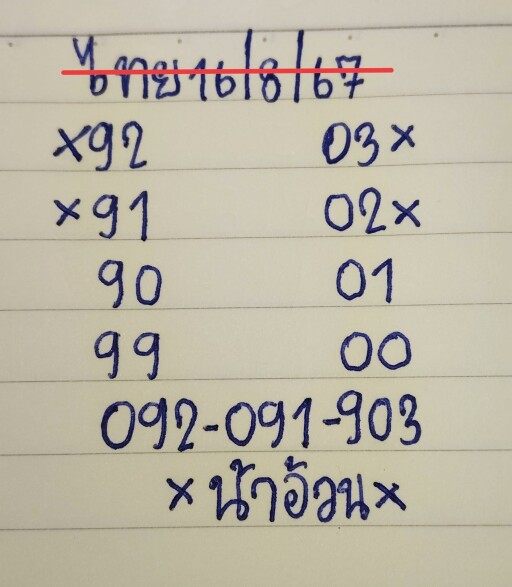 ไทย16/8/67
×92 03×
×91 02×
90 01
99 00
092-091-903
×น้าอ้วน×